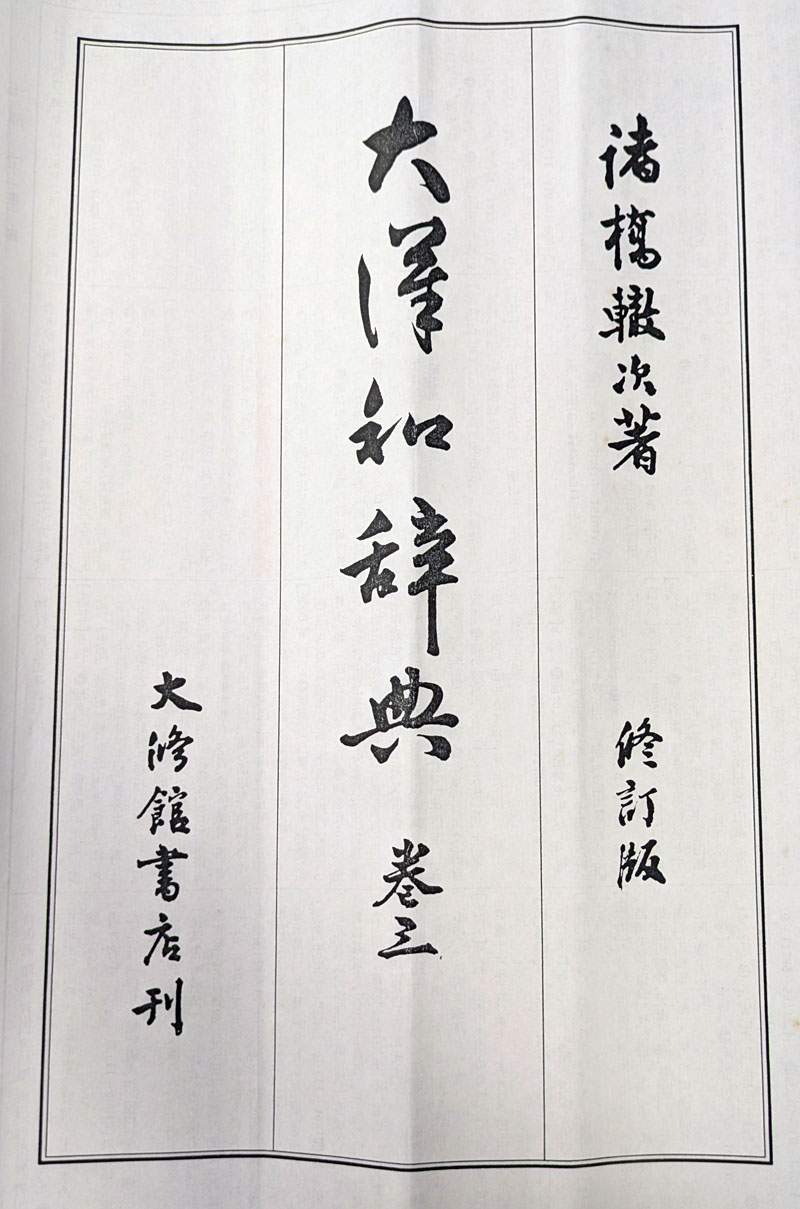 諸橋轍次著
修訂版
大漢和辞典 巻三
大修館書店刊